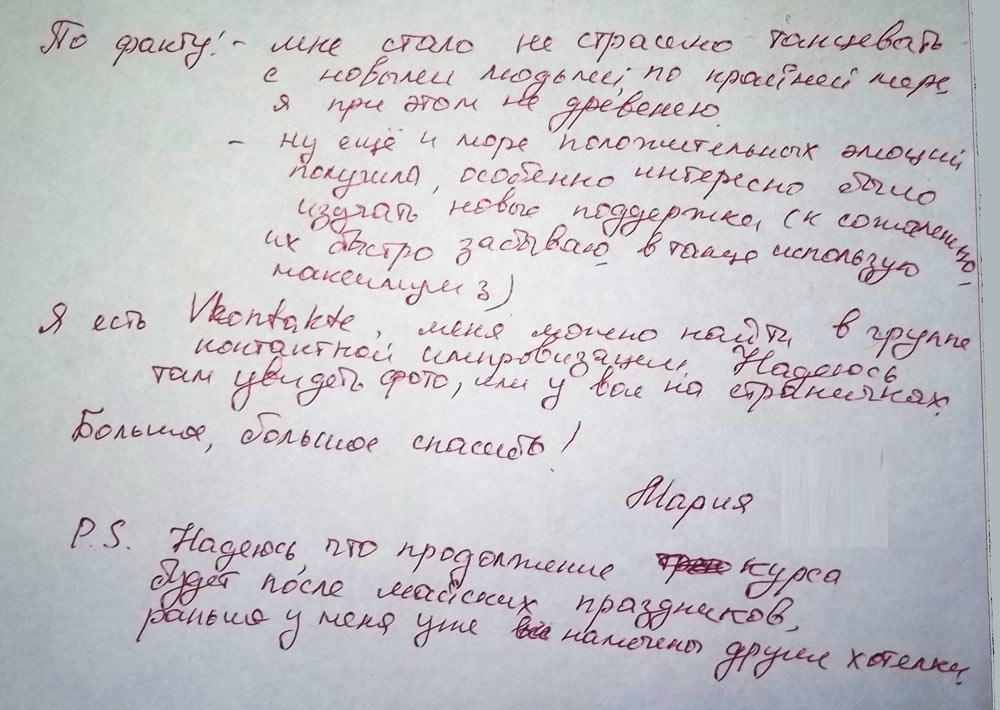 По факту: - мне стало не страшно танцевать
с новыми людьми, по крайней мере,
я при этом не древенею.
- ну ещё и море положительных эмоций
получила, особенно интересно было
изучать новые поддержки (к сожалению
их быстро забываю в танце использую
максимум 3)
Я есть Vkontakte, меня можно найти в группе
контактной импровизации. Надеюсь
там увидеть фото, или у вас на страничках.
Большое, большое спасибо!
Мария
P.S. Надеюсь, что продолжение курса
будет после майских праздников,
раньше у меня уже намечены другие хотелки